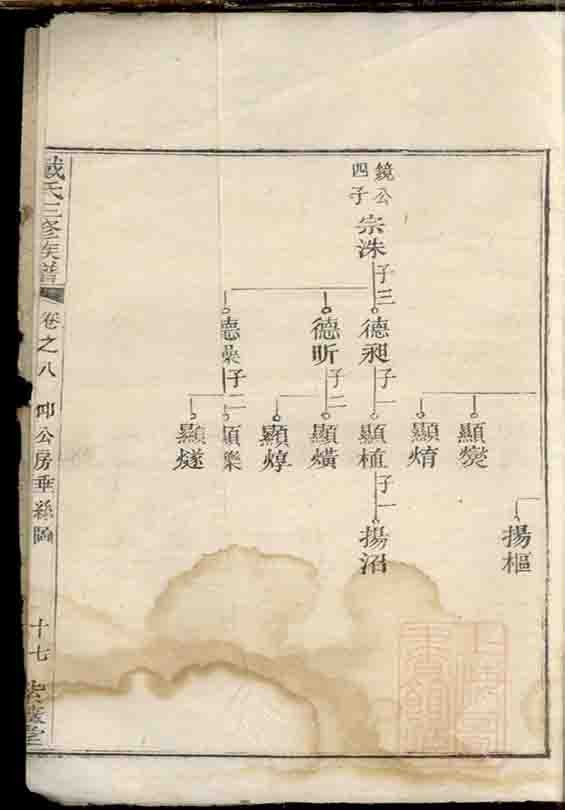 揚樞
顯燮
顯焴
鏡公
四子
宗洙
子三
德昶
子一
顯植
子一
揚沼
德昕
子二
顯熿
顯焞
德燊
子二
顯樂
顯燧
戴氏三修族譜
卷之八
公房垂絲圖
十七